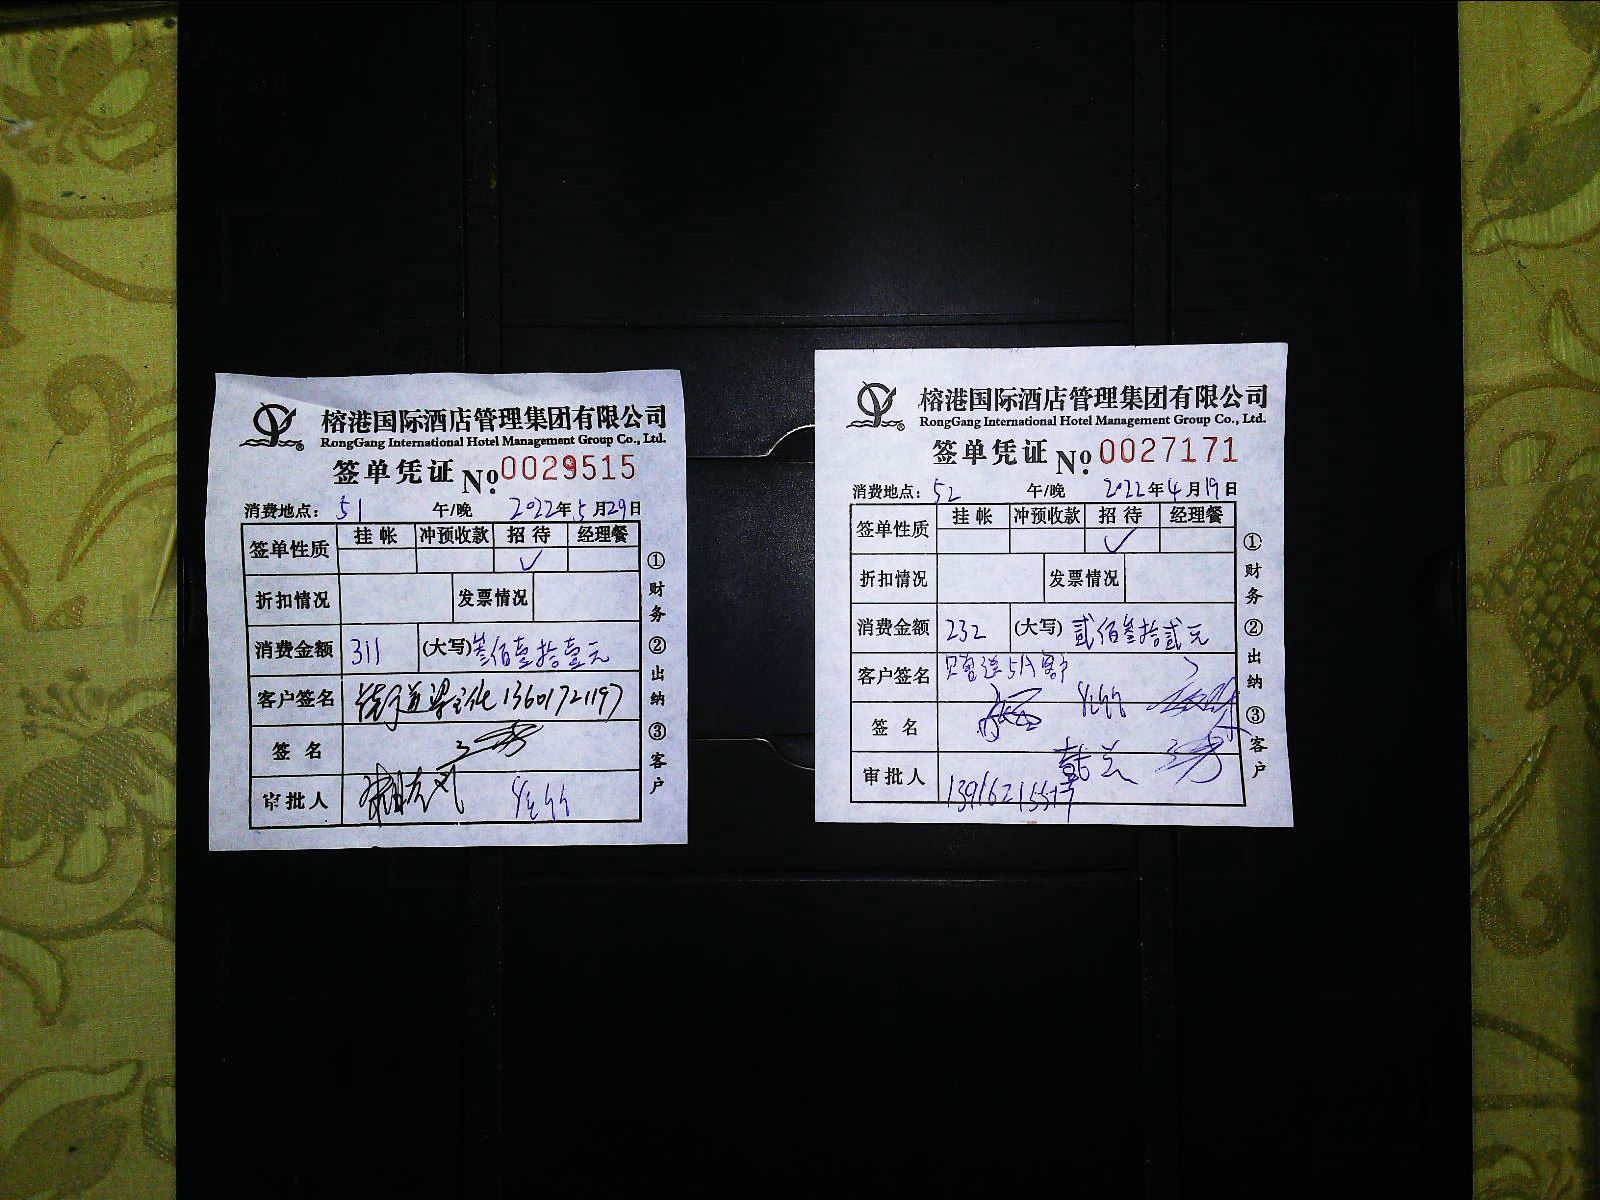 榕港国际酒店管理集团有限公司
RongGang International Hotel Management Group Co., Ltd.
签单凭证 No. 0029515
消费地点: 51 午/晚 2022年5月29日
签单性质 挂帐 冲预收款 招待 经理餐
✓
折扣情况 发票情况
消费金额 311 (大写) 叁佰壹拾壹元
客户签名 13601721197
签名
审批人
①财务 ②出纳 ③客户
榕港国际酒店管理集团有限公司
RongGang International Hotel Management Group Co., Ltd.
签单凭证 No. 0027171
消费地点: 52 午/晚 2022年4月19日
签单性质 挂帐 冲预收款 招待 经理餐
✓
折扣情况 发票情况
消费金额 232 (大写) 贰佰叁拾贰元
客户签名
签名
审批人
①财务 ②出纳 ③客户